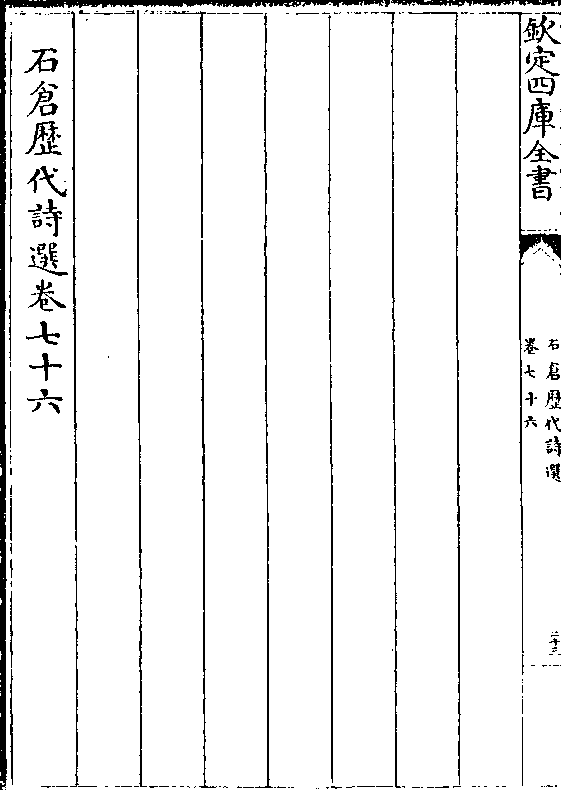 欽定四庫全書
石倉歷代詩選
卷七十六
二十三
石倉歷代詩選卷七十六